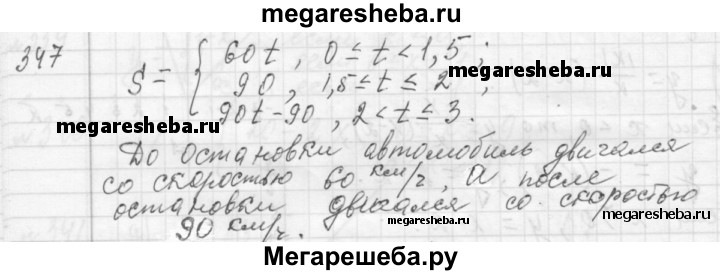 megaresheba.ru
347
S = { 60t, 0 ≤ t < 1,5;
90, 1,5 ≤ t ≤ 2;
90t-90, 2 < t ≤ 3.
megaresheba.ru
megaresheba.ru
До остановки автомобиль двигался
со скоростью 60 км/г, а после
остановки двигался со скоростью
90 км/г.
megaresheba.ru
megaresheba.ru
Мегарешеба.ру